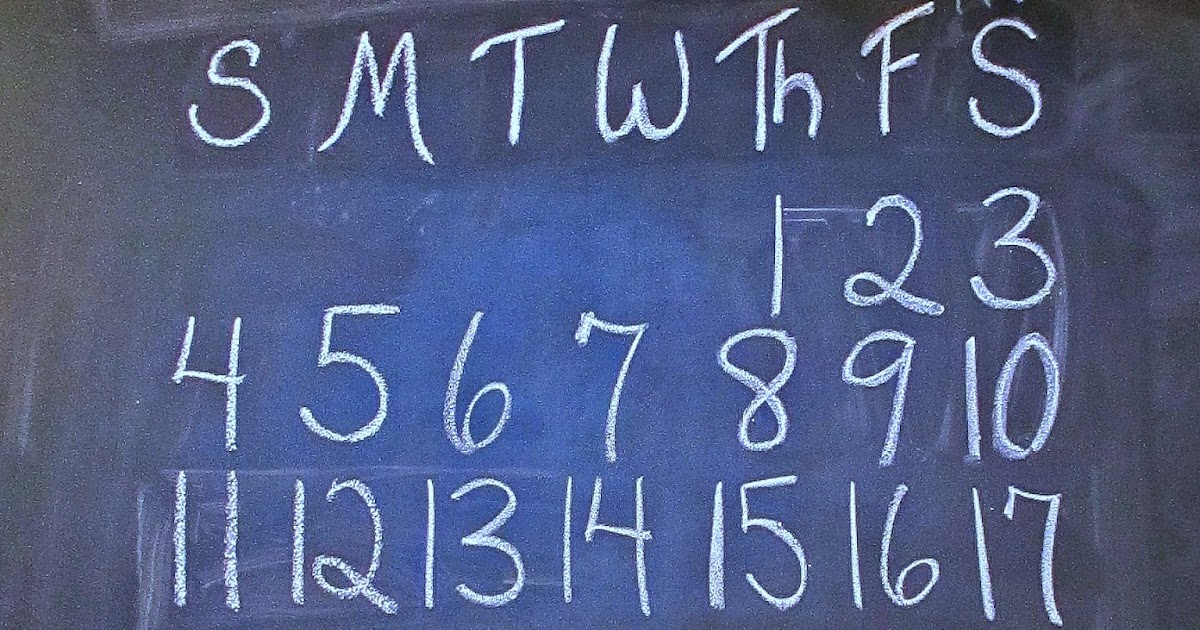 S M T W Th F S
1 2 3
4 5 6 7 8 9 10
11 12 13 14 15 16 17